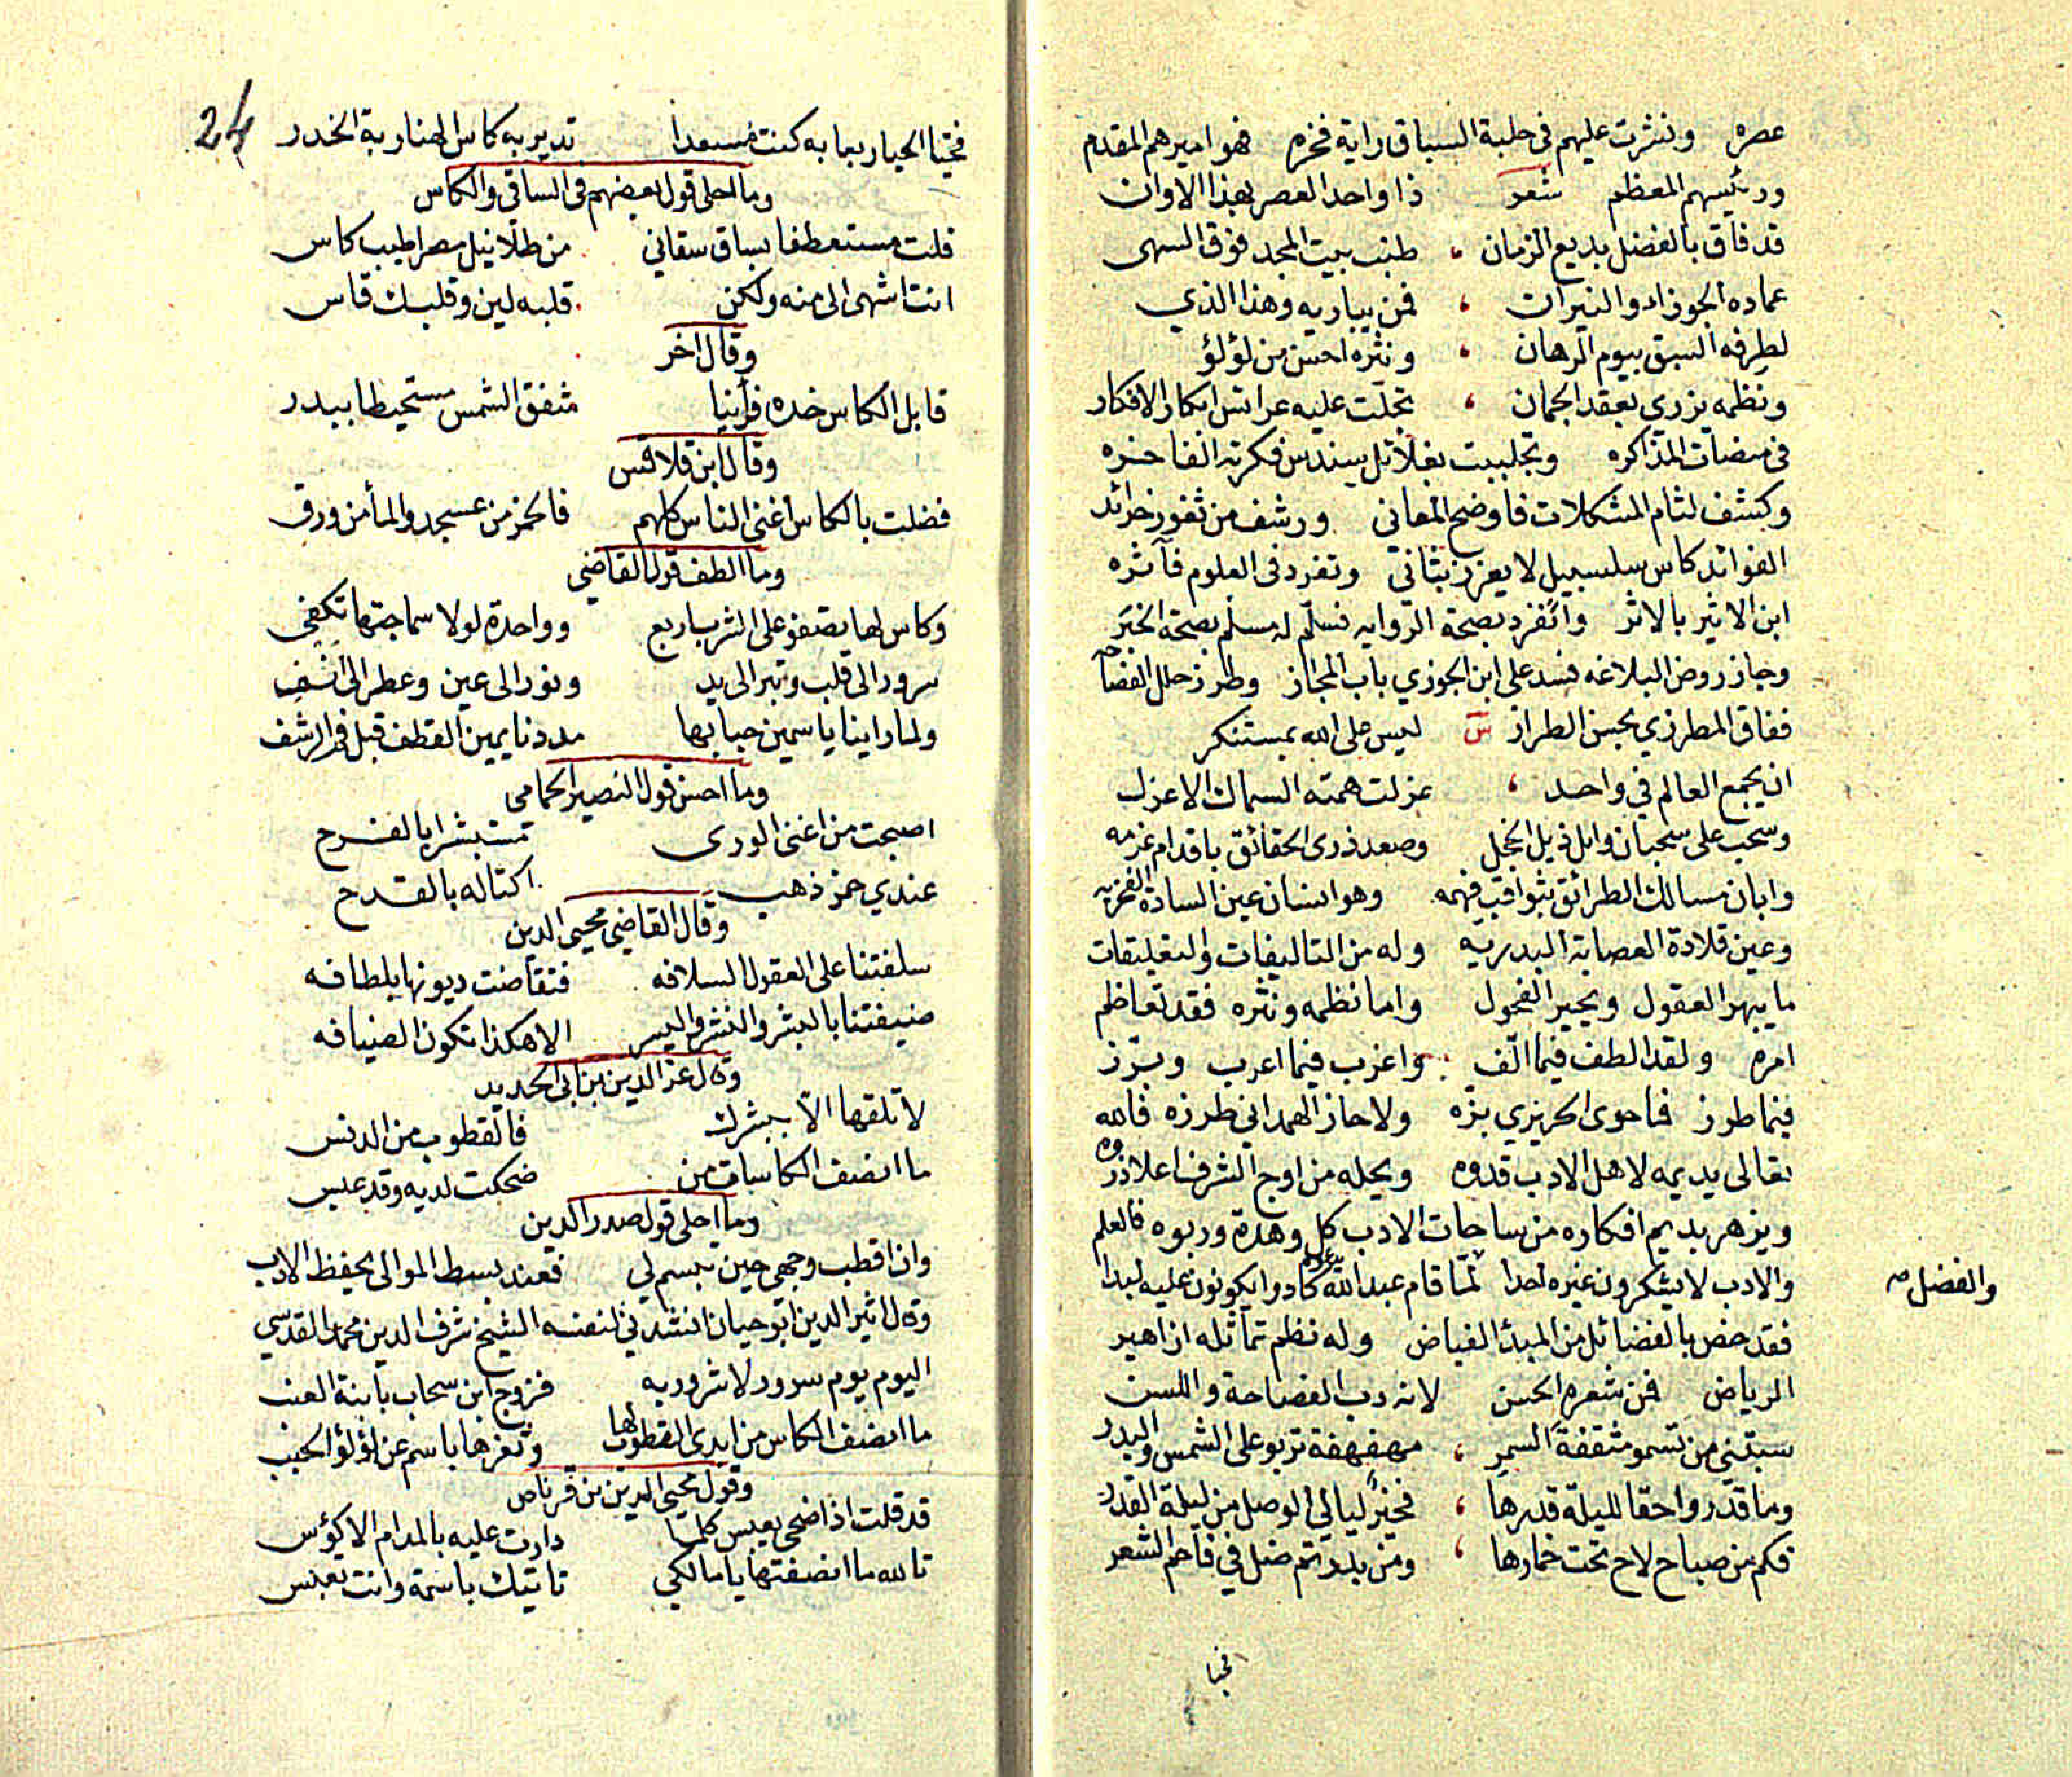 عصره ونشرت عليهم فى حلبة السباق راية فخره فهو اميرهم المقدم
ورئيسهم المعظم شعر ذا واحد العصر بهذا الاوان
قد فاق بالفضل بديع الزمان ، طنب بيت المجد فوق السهى
عماده الجوزاء والنيرات ، فمن يباريه وهذا الذي
لطرفه السبق بيوم الرهان ، ونثره احسن من لؤلؤ
ونظمه يزري بعقد الجمان ، تجلت عليه عرائس ابكار الافكار
فى منصات المذاكره وتجلببت بغلائل سندس فكرته الفاخره
وكشف لثام المشكلات فاوضح المعانى ورشف من ثغور خرائد
الفوائد كاس سلسبيل لا يعزز بثانى وتفرد فى العلوم فآثره
ابن الاثير بالاثر وانفرد بصحة الروايه فسلم له مسلم بصحة الخبر
وجاز روض البلاغه فسد على ابن الجوزي باب المجاز وطرز حلل الفصاحه
ففاق المطرزي بحسن الطراز س ليس على الله بمستنكر
ان يجمع العالم في واحد ، عزلت همته السماك الاعزل
وسحب على سحبان وايل ذيل الخجل وصعد ذرى الحقائق باقدام عزمه
وابان مسالك الطرائق بثواقب فهمه وهو انسان عين السادة الفخريه
وعين قلادة العصابة البدريه وله من التاليفات والتعليقات
ما يبهر العقول ويحير الفحول واما نظمه ونثره فقد تعاظم
امره ولقد الطف فيما الّف واغرب فيما اعرب وبرّز
فيما طرز فما حوى الحريري بزه ولا حاز الهمدانى طرزه فالله
تعالى يديمه لاهل الادب قدوه ويحله من اوج الشرف اعلا ذروه
ويزهر بديم افكاره من ساحات الادب كل وهدة وربوه فالعلم
والادب لا يشكرون غيره احدا لمّا قام عبد الله يدعوه كادوا يكونون عليه لبدا
والفضل صح
فقد خص بالفضائل من المبدأ الفياض وله نظم تماثله ازاهير
الرياض فمن شعره الحسن لانه رب الفصاحة واللسن
سبتنى من تسمو مثقفة السمر ، مهفهفة تربو على الشمس والبدر
وما قدّروا حقا لليلة قدرها ، فخير ليالي الوصل من ليلة القدر
فكم من صباح لاح تحت خمارها ، ومن بدر تم ضل في فاحم الشعر
فحيا
24
فحيا الحيا ربعا به كنت مسعدا تدير به كاس الهنا ربة الخدر
وما احلى قول بعضهم فى الساقى والكاس
قلت مستعطفا بساق سقاني من طلا نيل مصر اطيب كاس
انت اشهى الى منه ولكن قلبه لين وقلبك قاس
وقال اخر
قابل الكاس خده فرأينا شفق الشمس مستحيطا ببدر
وقال ابن قلاقس
فضلت بالكاس اغنى الناس كلهم فالخمر من عسجد والمأ من ورق
وما الطف قول القاضي
وكاس لها يصفو على الشرب اربع وواحدة لولا سماجتها تكفى
سرور الى قلب وتبر الى يد ونور الى عين وعطر الى انف
ولما راينا ياسمين حبابها مددنا يمين القطف قبل فم الرشف
وما احسن قول النصير الحمامى
اصبحت من اغنى الورى مستبشرا بالفرح
عندي خمر ذهب اكتاله بالقدح
وقال القاضي محيى الدين
سلفتنا على العقول السلافه فتقاضت ديونها بلطافه
ضيفتنا بالبشر والنشر واليسر الا هكذا تكون الضيافه
وقال عز الدين بن ابى الحديد
لا تلقها الّا ببشرك فالقطوب من الدنس
ما انصف الكاسات من ضحكت لديه وقد عبس
وما احلى قول صدر الدين
وان اقطب وجهى حين تبسم لي فعند بسط الموالى يحفظ الادب
وقال اثير الدين ابو حيان انشدنى لنفسه الشيخ شرف الدين محمد القدسي
اليوم يوم سرور لا شرور به فزوج ابن سحاب بابنة العنب
ما انصف الكاس من ابدى القطوب لها وثغرها باسم عن لؤلؤ الحبب
وقول محيى الدين بن قرناص
قد قلت اذ اضحى يعبس كلما دارت عليه بالمدام الاكؤس
تالله ما انصفتها يا مالكي تاتيك باسمة وانت تعبس